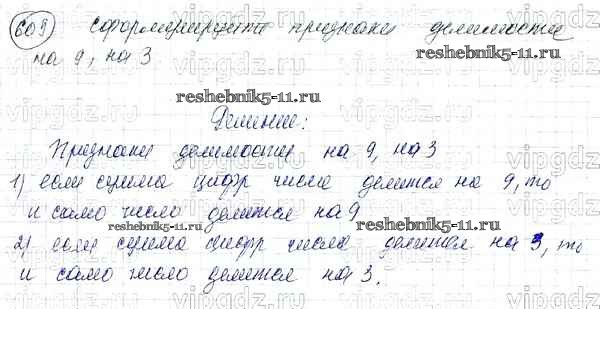 609 сформулируйте признаки делимости
на 9, на 3
reshebnik5-11.ru
reshebnik5-11.ru
Решение:
Признаки делимости на 9, на 3
1) если сумма цифр числа делится на 9, то
и само число делится на 9
reshebnik5-11.ru
reshebnik5-11.ru
2) если сумма цифр числа делится на 3, то
и само число делится на 3.
vipgdz.ru